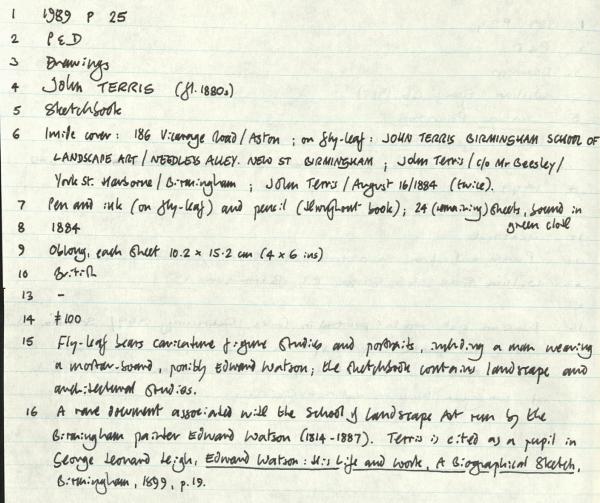 1 1989 P 25
2 P&D
3 Drawings
4 John TERRIS (fl. 1880s)
5 Sketchbook
6 Inside cover: 186 Vicarage Road/Aston; on fly-leaf: JOHN TERRIS BIRMINGHAM SCHOOL OF
LANDSCAPE ART/NEEDLESS ALLEY. NEW ST BIRMINGHAM; John Terris/c/o Mr Beesley/
York St. Harborne/Birmingham; John Terris/August 16/1884 (twice).
7 Pen and ink (on fly-leaf) and pencil (throughout book); 24 (remaining) sheets, bound in
green cloth
8 1884
9 Oblong, each sheet 10.2 x 15.2 cm (4 x 6 ins)
10 British
13 -
14 £100
15 Fly-leaf bears caricature figure studies and portraits, including a man wearing
a mortar-board, possibly Edward Watson; the sketchbook contains landscape and
architectural studies.
16 A rare document associated with the School of Landscape Art run by the
Birmingham painter Edward Watson (1814-1887). Terris is cited as a pupil in
George Leonard Leigh, Edward Watson: His Life and Work, A Biographical Sketch,
Birmingham, 1899, p.19.